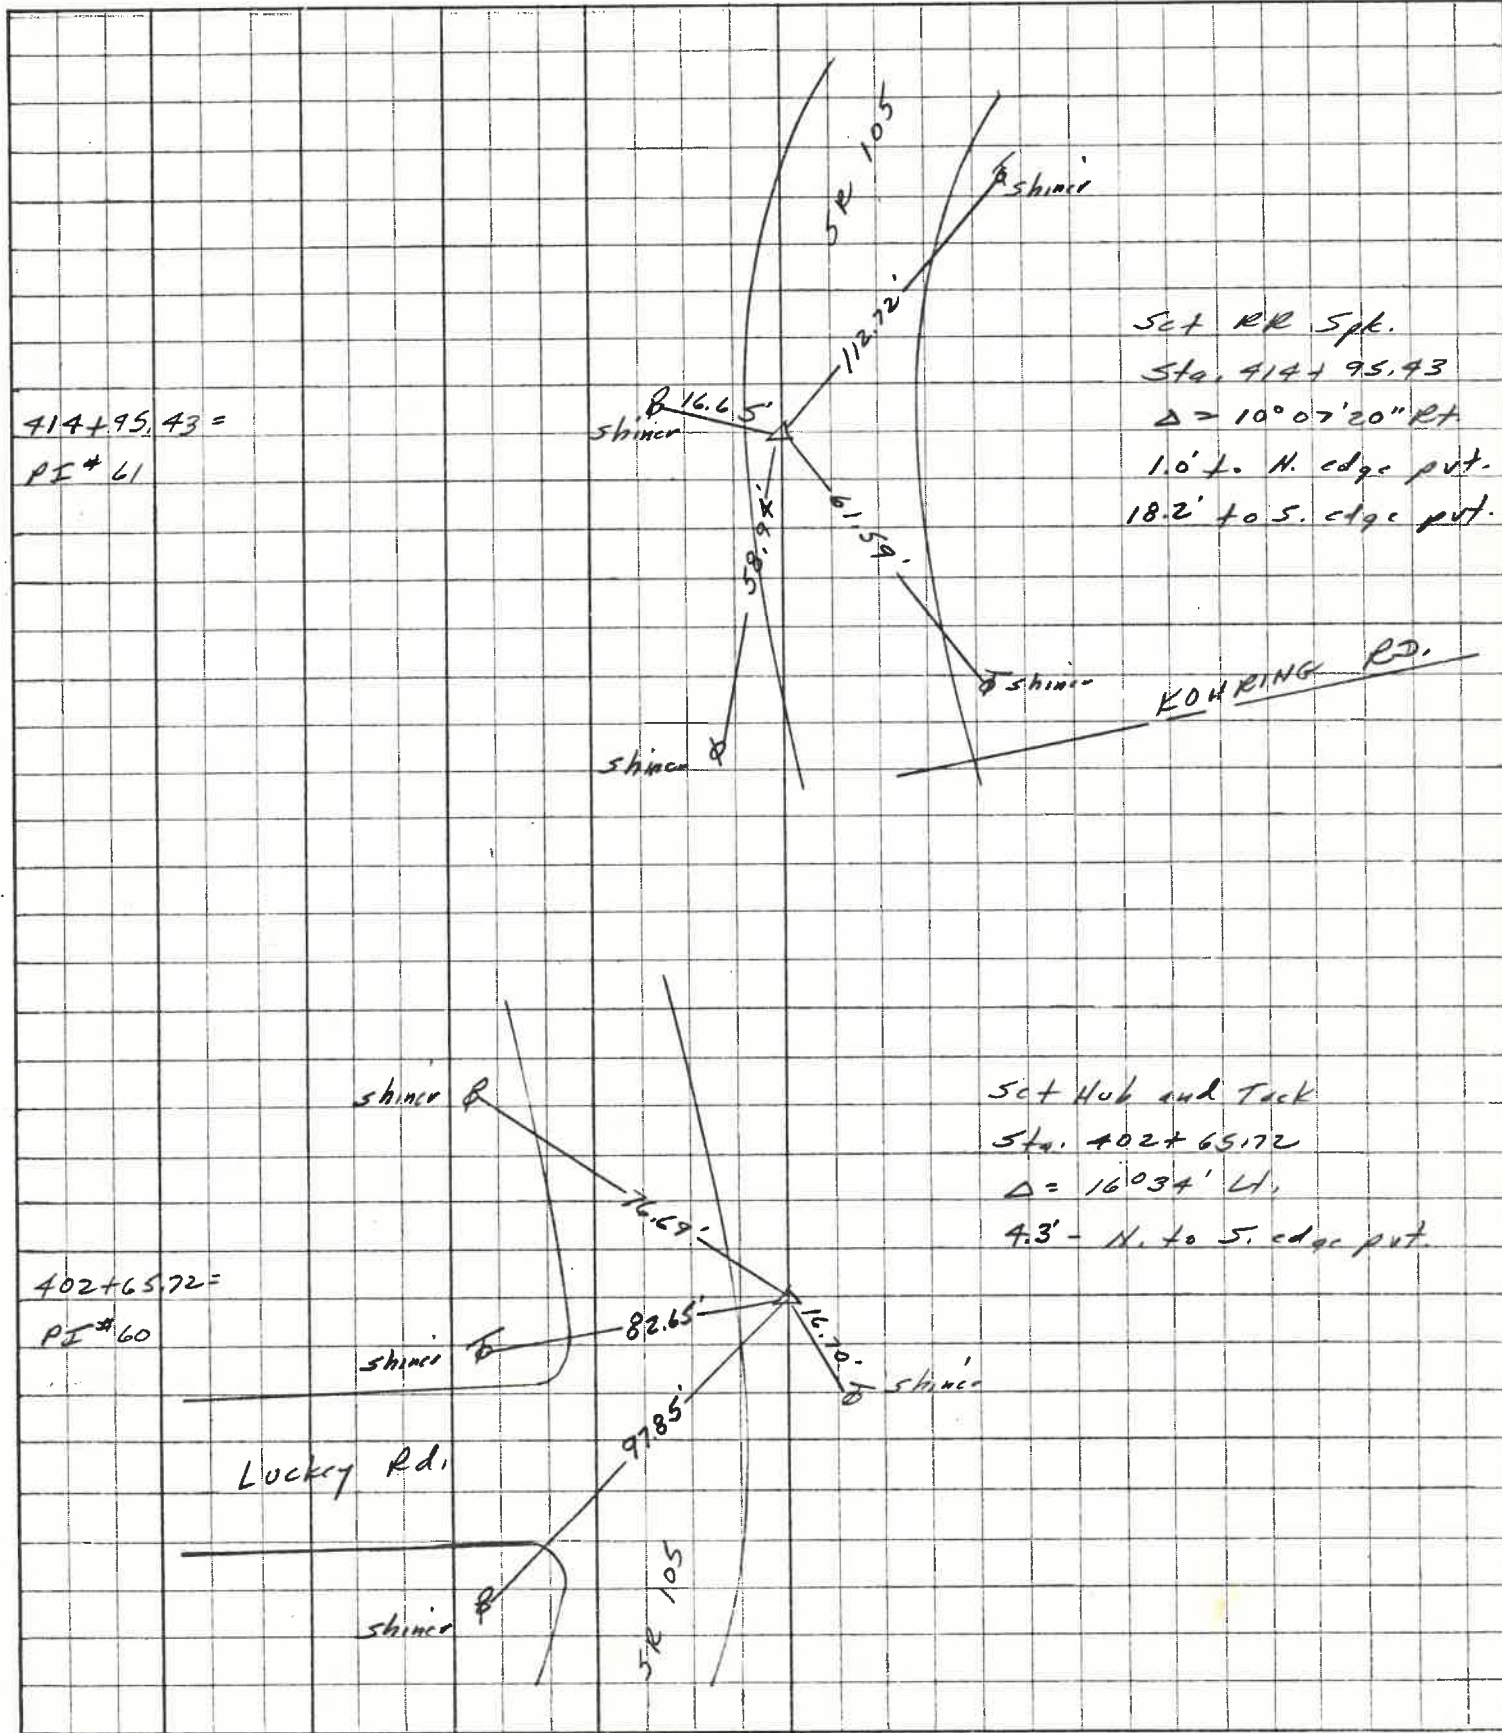 SR 105
shiner
112.72'
Set RR Spk.
Sta. 414+95.43
Δ = 10°07'20" Rt.
1.0' to N. edge pvt.
18.2' to S. edge pvt.
414+95.43 =
PI # 61
shiner
16.65'
61.59'
shiner
KOHRING RD.
shiner
shiner
Set Hub and Tack
Sta. 402+65.72
Δ = 16°34' Lt.
4.3' - N. to S. edge pvt.
402+65.72 =
PI # 60
82.65'
shiner
16.70'
shiner
97.85'
Luckey Rd.
shiner
SR 105